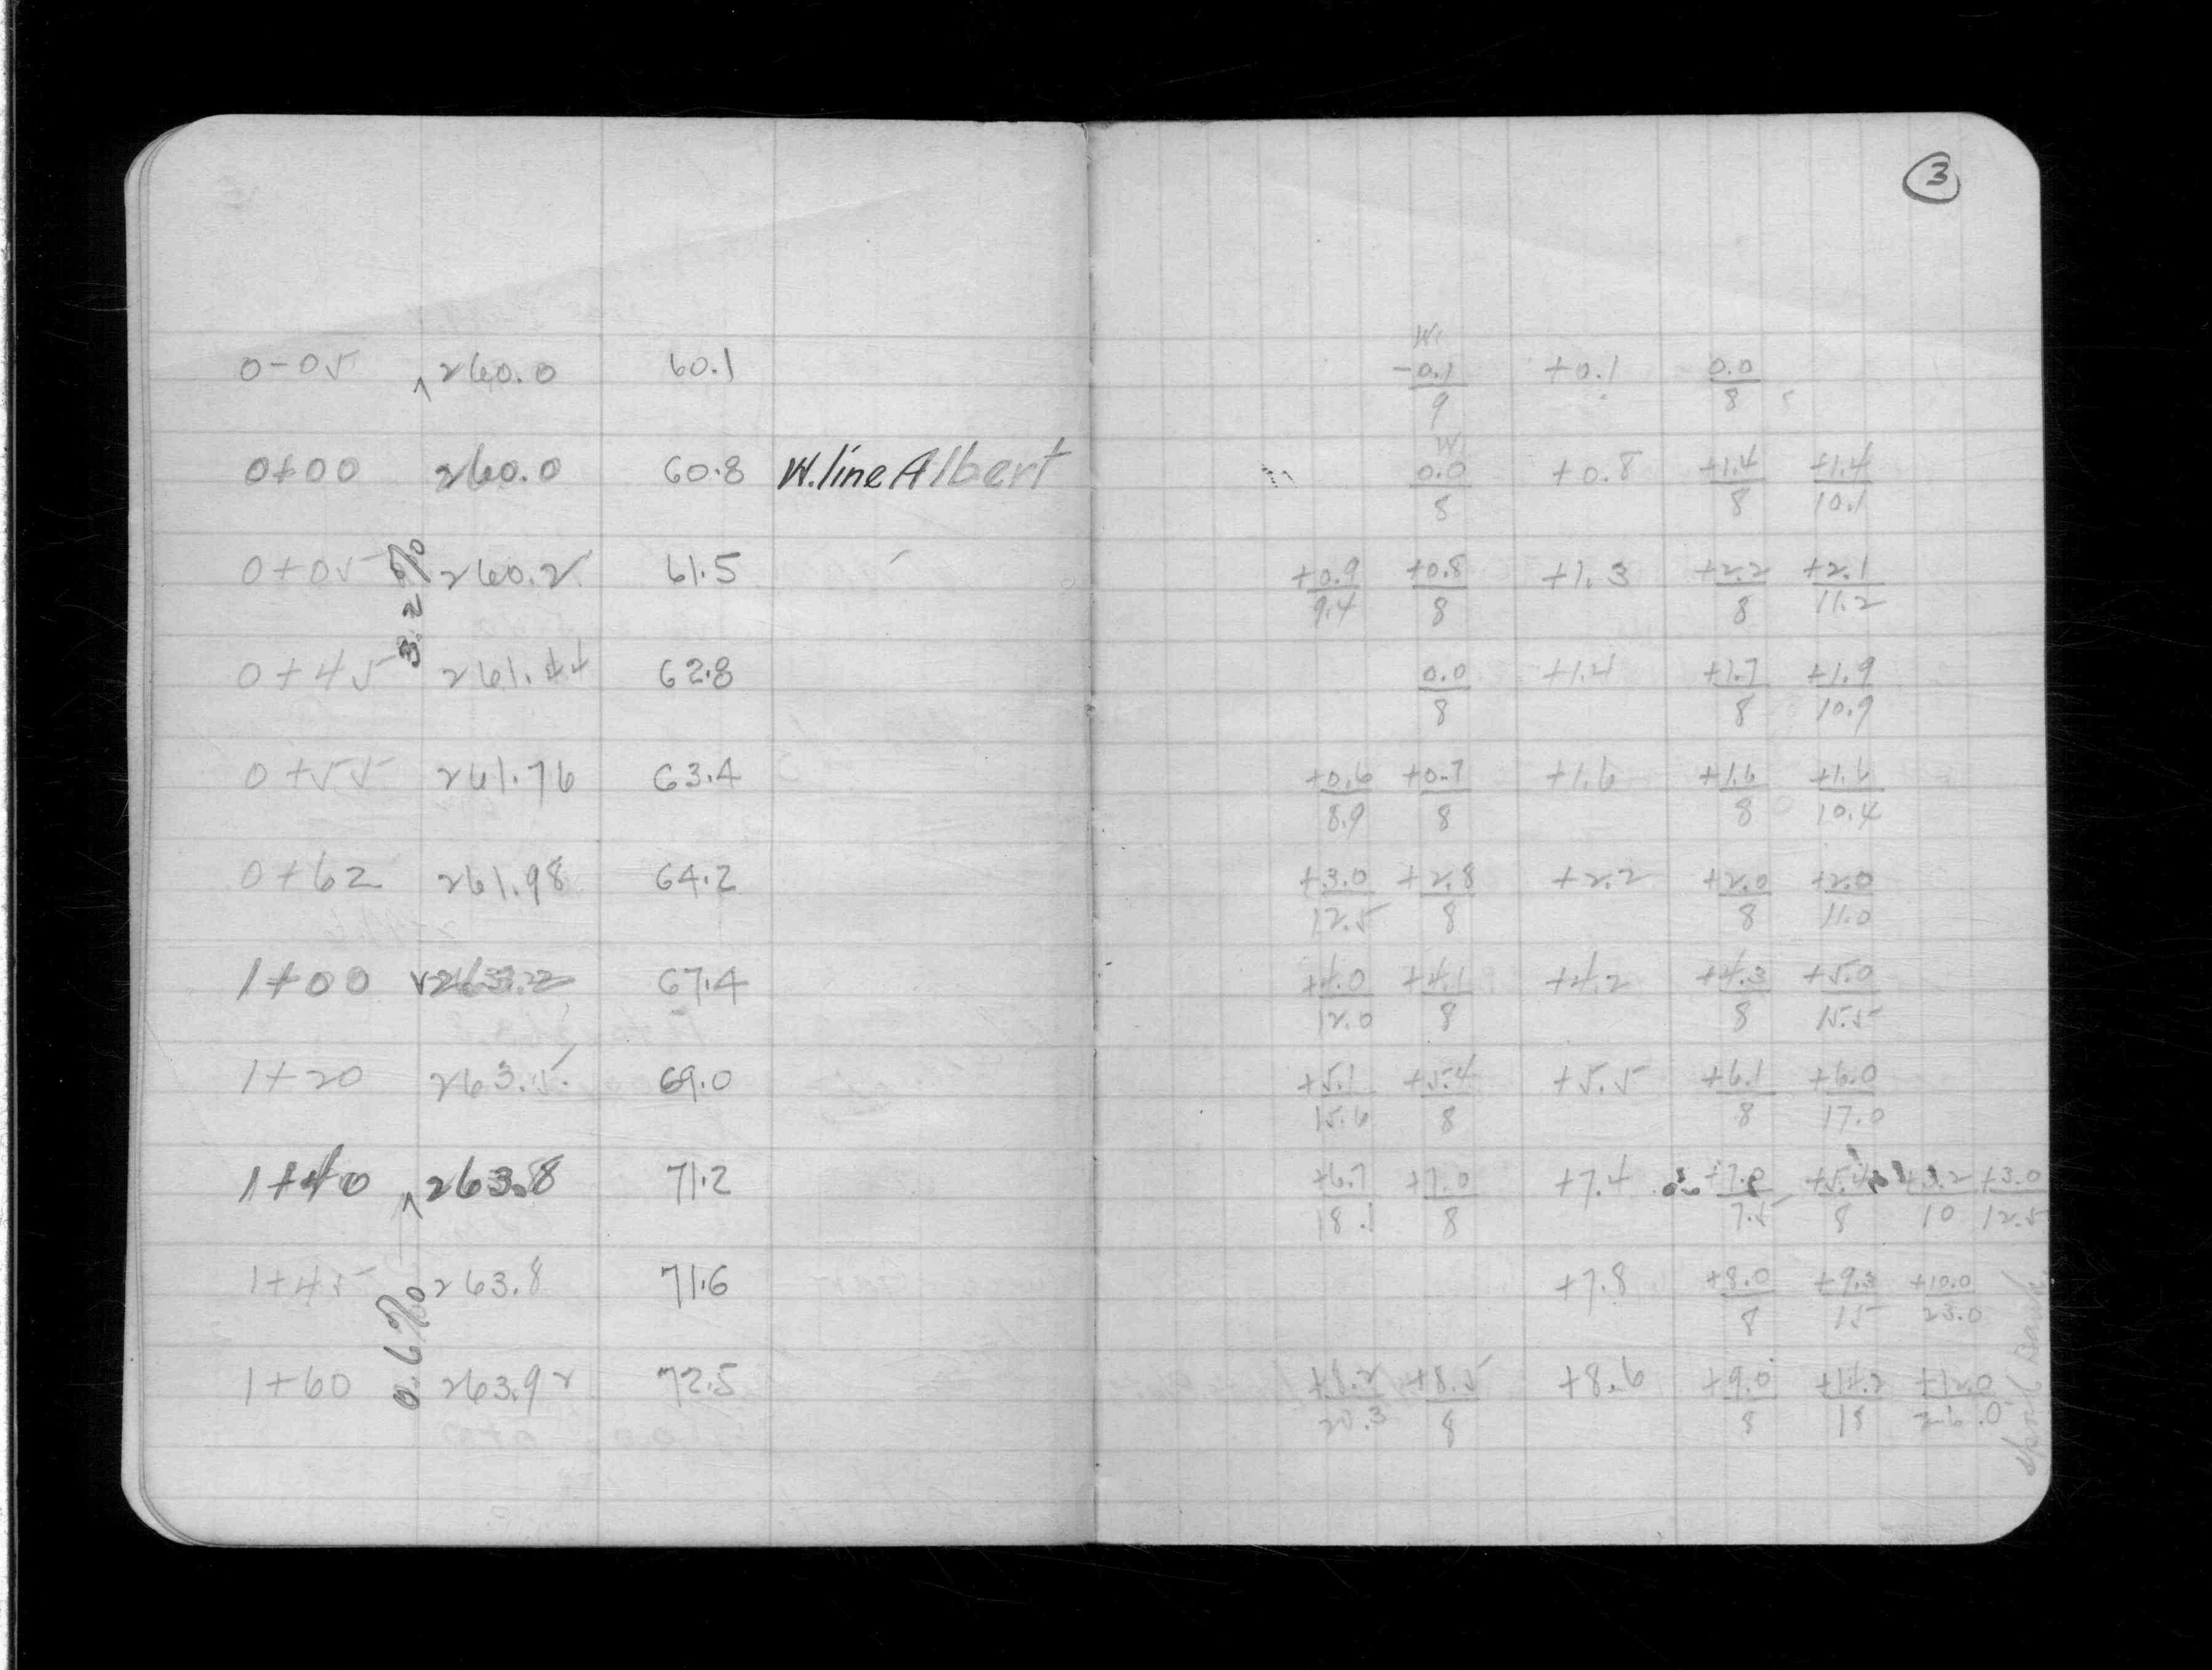 3
W.
0-05 260.0 60.1 -0.1/9 +0.1 0.0/8
W
0+00 260.0 60.8 W.line Albert 0.0/8 +0.8 +1.4/8 +1.4/10.1
3.2%
0+05 260.2 61.5 +0.9/9.4 +0.8/8 +1.3 +2.2/8 +2.1/11.2
0+45 261.44 62.8 0.0/8 +1.4 +1.7/8 +1.9/10.9
0+55 261.76 63.4 +0.6/8.9 +0.7/8 +1.6 +1.6/8 +1.6/10.4
0+62 261.98 64.2 +3.0/12.5 +2.8/8 +2.2 +2.0/8 +2.0/11.0
1+00 263.22 67.4 +4.0/12.0 +4.1/8 +4.2 +4.3/8 +5.0/15.5
1+20 263.5 69.0 +5.1/15.6 +5.4/8 +5.5 +6.1/8 +6.0/17.0
1+40 263.8 71.2 +6.7/18.1 +7.0/8 +7.4 /7.5 /8 +3.2/10 +3.0/12.5
0.6%
1+45 263.8 71.6 +7.8 +8.0/8 +9.3/15 +10.0/23.0
1+60 263.92 72.5 +8.2/20.3 +8.5/8 +8.6 +9.0/8 /18 +12.0/26.0
Bank